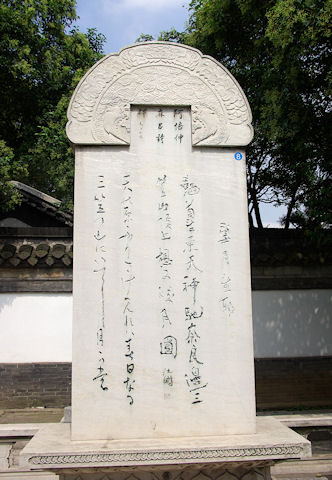 阿倍仲
麻呂詩
望月望鄉
翹首望東天神馳奈良邊三
笠山頂上想又皎月圓
天の原ふりさけ見れば春日なる
三笠の山にいでし月かも
8